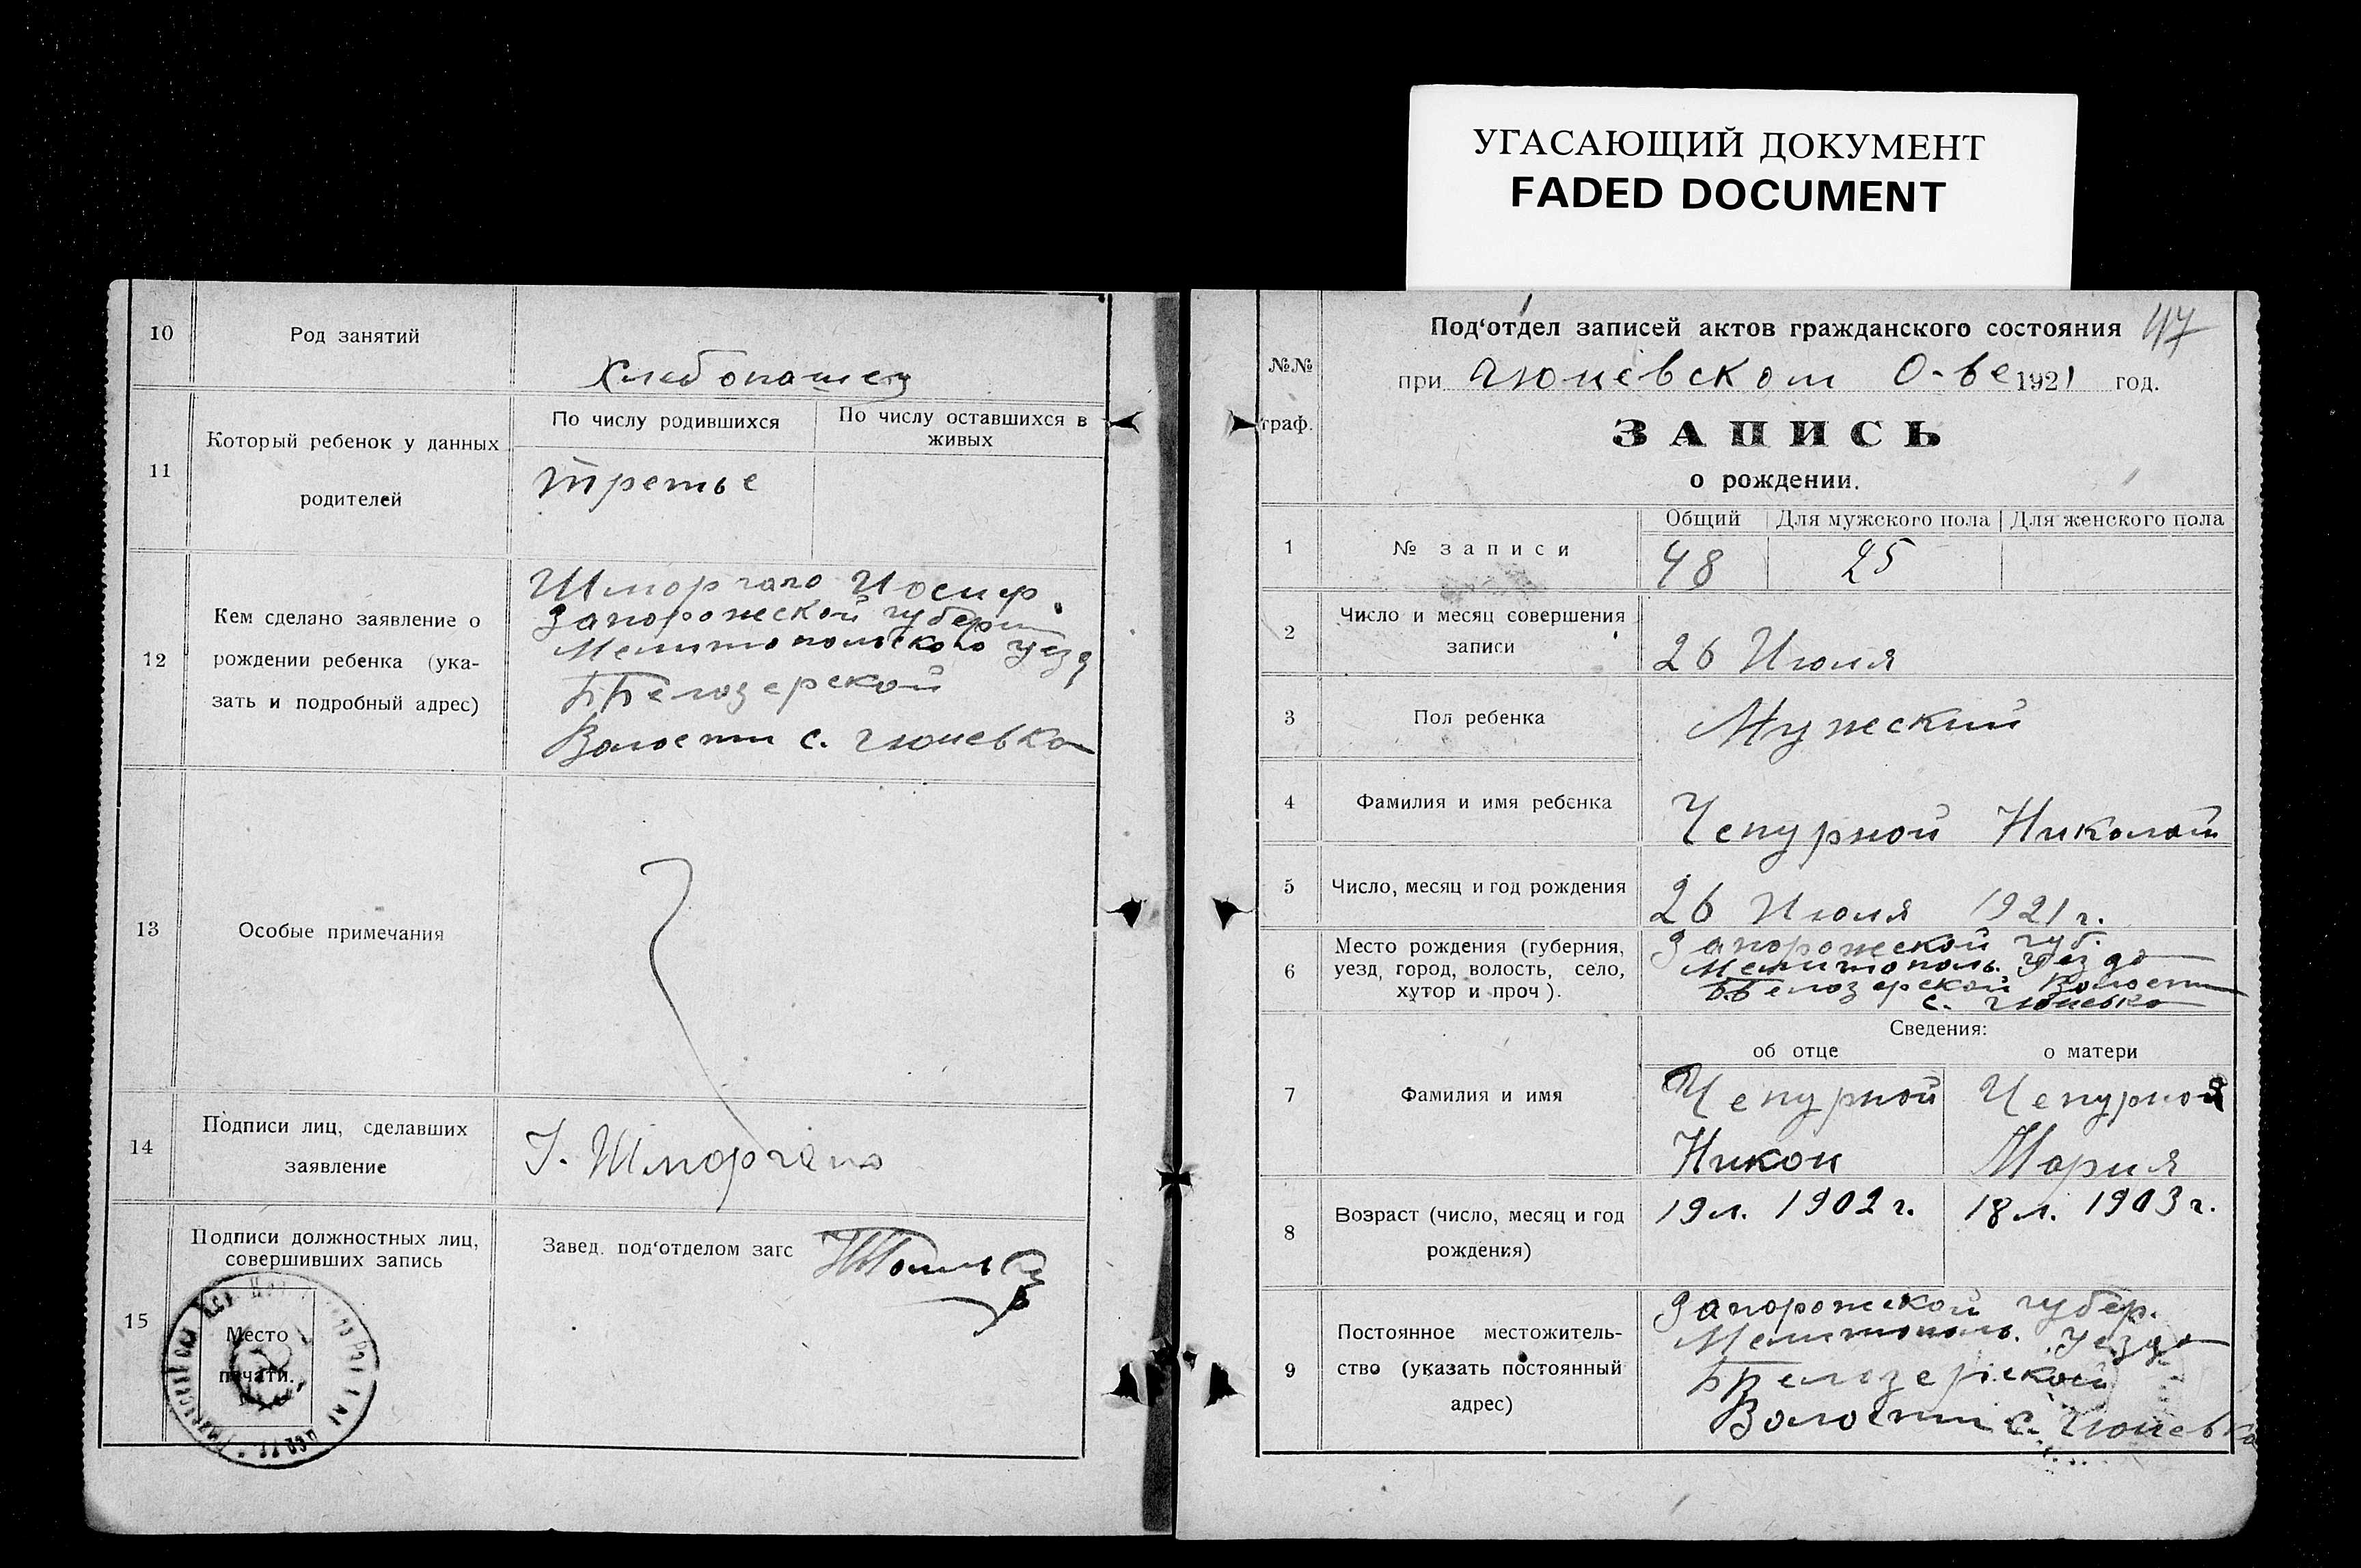 УГАСАЮЩИЙ ДОКУМЕНТ
FADED DOCUMENT
10 Род занятий Хлебопашец
11 Который ребенок у данных родителей
По числу родившихся
По числу оставшихся в живых
третье
12 Кем сделано заявление о рождении ребенка (ука-
зать и подробный адрес)
Шморгало Иосиф.
Запорожской губерн
Мелитопольского уезд
Б Белозерской
Волости с. Гюневка
13 Особые примечания
14 Подписи лиц, сделавших
заявление
І. Шморгало
15 Подписи должностных лиц,
совершивших запись
Завед. под‘отделом загс
Место
печати.
№№
граф.
Под‘отдел записей актов гражданского состояния 47
при Гюневском О-ве 1921 год.
ЗАПИСЬ
о рождении.
Общий Для мужского пола Для женского пола
1 № записи 48 25
2 Число и месяц совершения
записи
26 Июля
3 Пол ребенка Мужеский
4 Фамилия и имя ребенка Чепурной Николай
5 Число, месяц и год рождения 26 Июля 1921 г.
6 Место рождения (губерния,
уезд, город, волость, село,
хутор и проч).
Запорожеской губ.
Мелитополь. Уезда
Б.Белозерской Волости
с. Гюневка
Сведения:
об отце о матери
7 Фамилия и имя
Чепурной Чепурной
Никон Мария
8 Возраст (число, месяц и год
рождения)
19 л. 1902 г. 18 л. 1903 г.
9 Постоянное местожитель-
ство (указать постоянный
адрес)
Запорожской губер.
Мелитополь. Уезда
Б Белозерской
Волости с. Гюневка